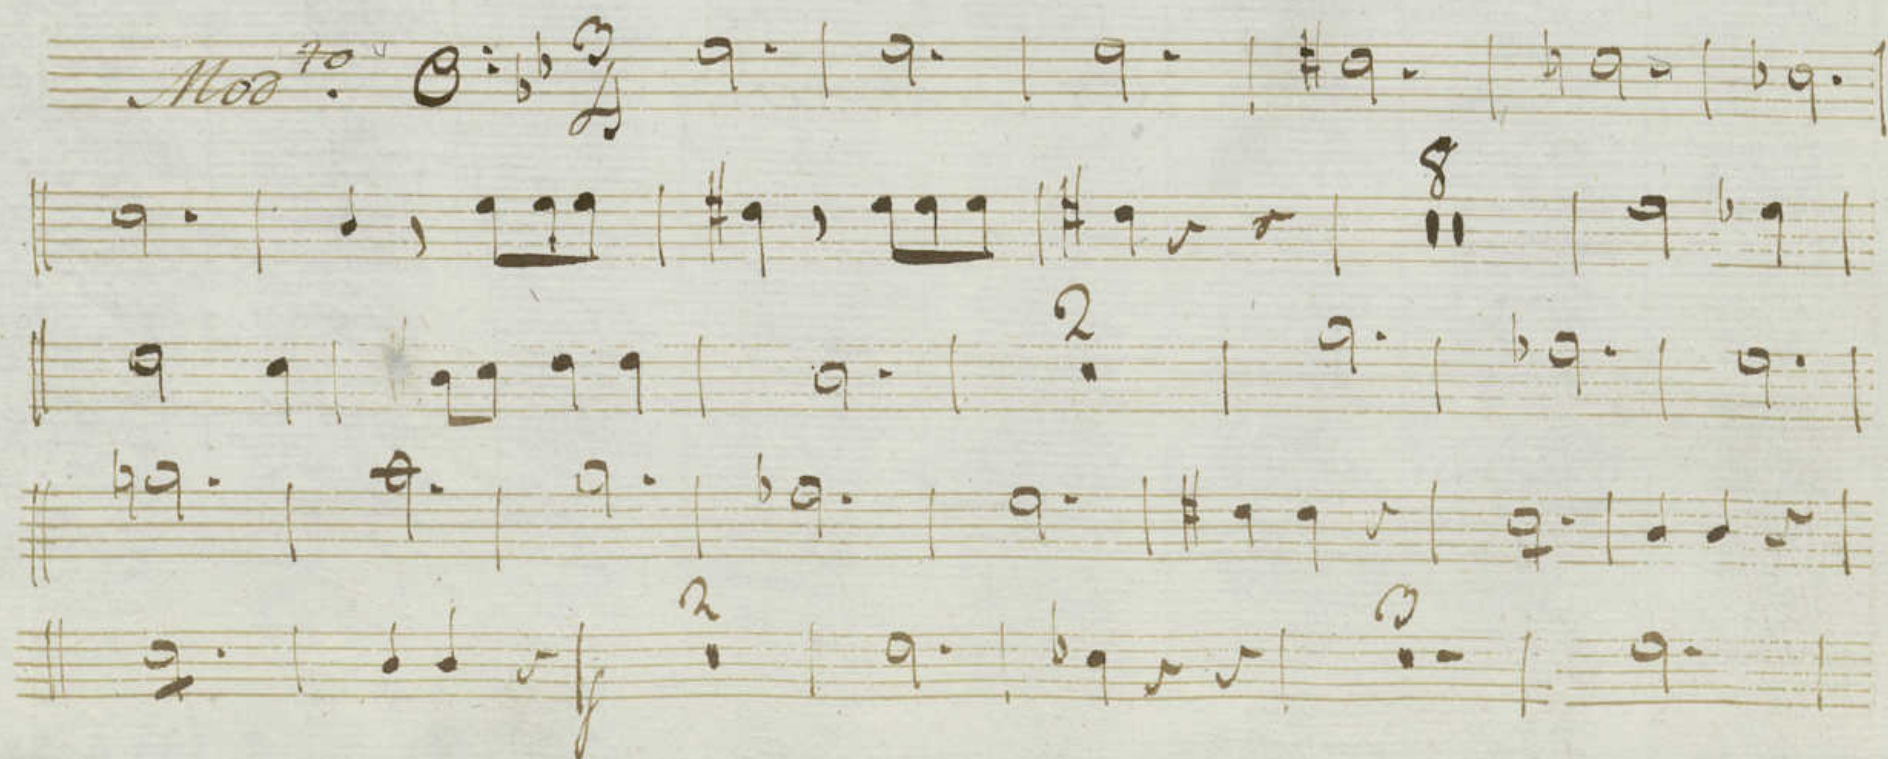 Mod.to 3 4
8
2
2 3
f